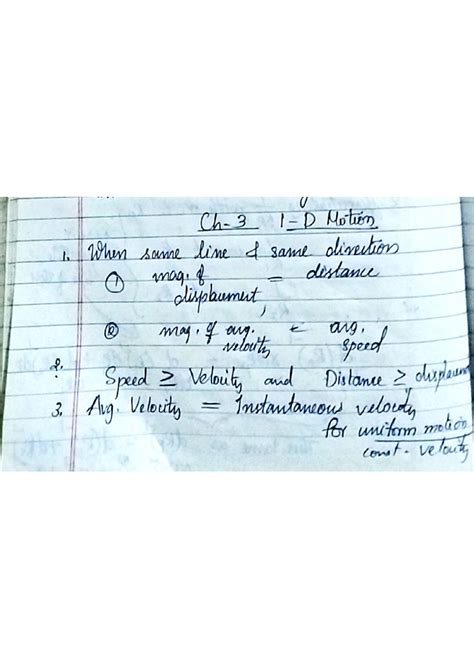 Ch-3 1-D Motion
1. When same line & same direction
① mag. of = distance
displacement,
② mag. of avg. = avg.
velocity speed
2. Speed ≥ Velocity and Distance ≥ displacement
3. Avg. Velocity = Instantaneous velocity
for uniform motion
const. velocity